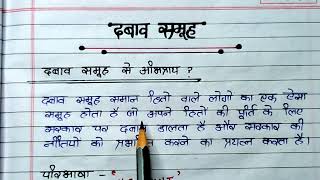 दबाव समूह
दबाव समूह से अभिप्राय ?
दबाव समूह समान हितों वाले लोगों का एक ऐसा
समूह होता है जो अपने हितों की पूर्ति के लिए
सरकार पर डालता है और सरकार की
नीतियों को करने का प्रयत्न करता है।
परिभाषा -